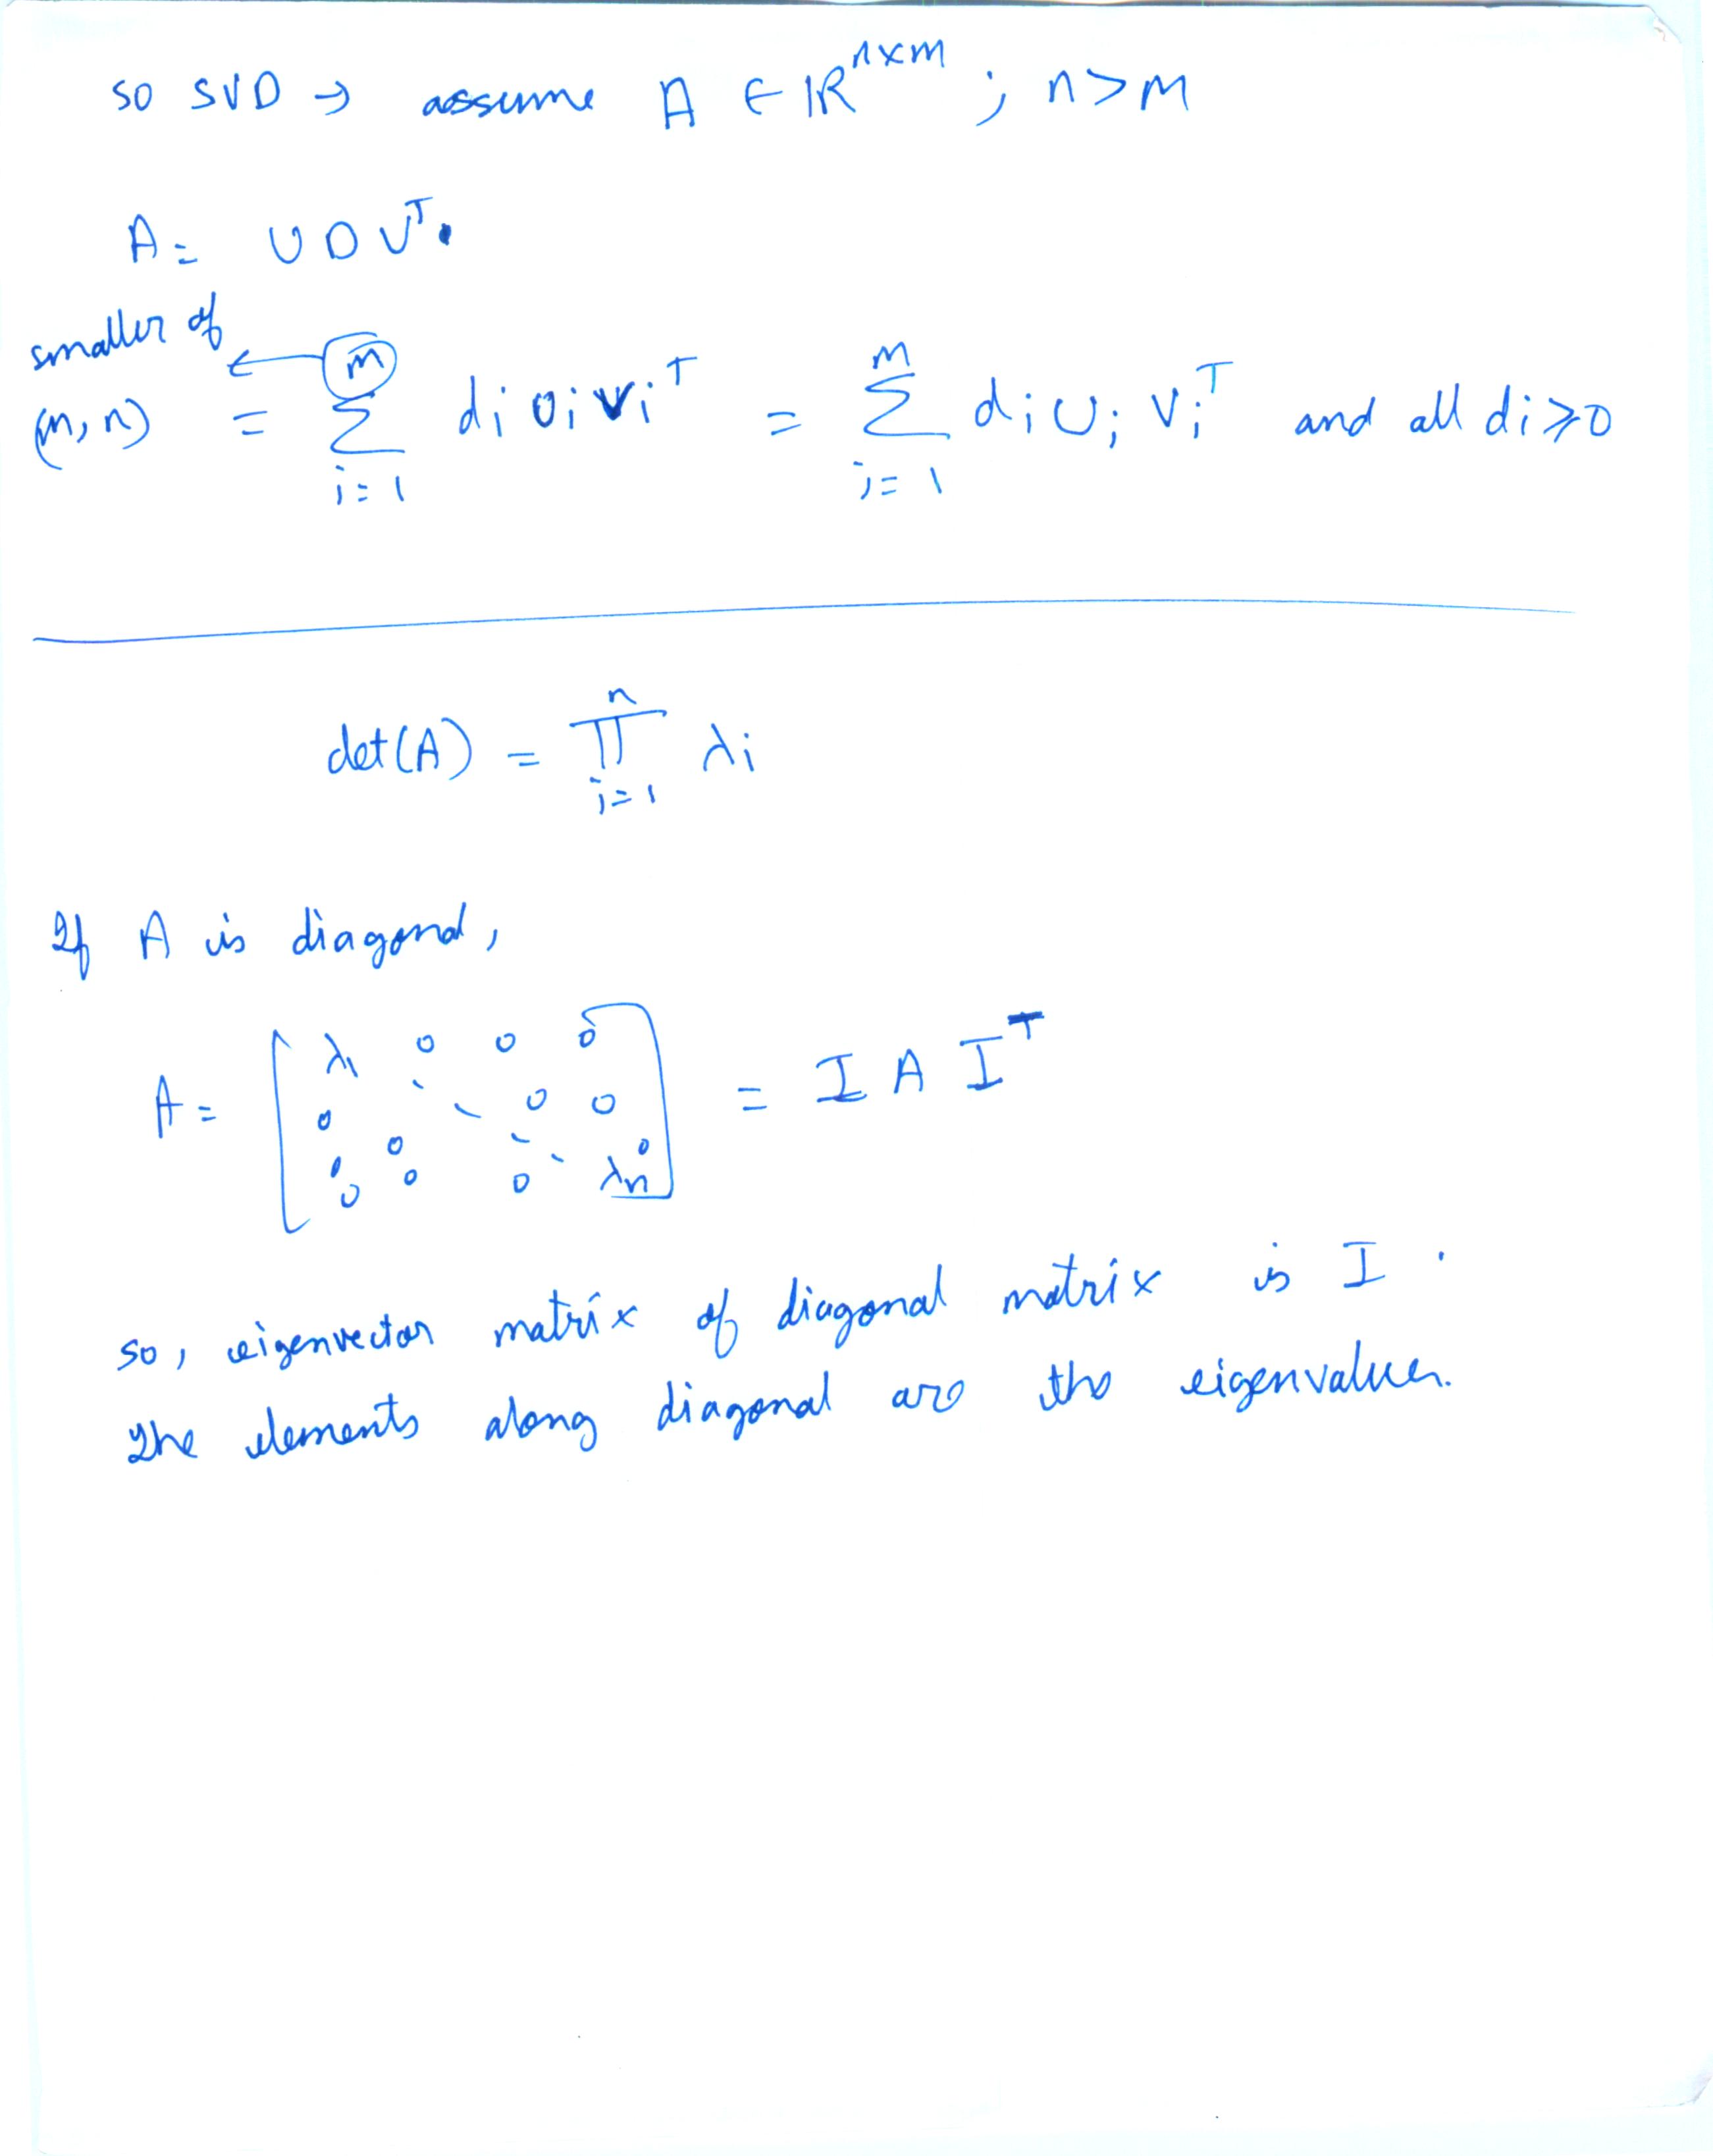 so SVD → assume A ∈ ℝ^{n×m} ; n>m
A = U D V^T.
smaller of (m,n) ← m
= ∑_{i=1}^{m} d_i u_i v_i^T = ∑_{i=1}^{m} d_i U_i V_i^T and all d_i ≥ 0
det(A) = ∏_{i=1}^{n} λ_i
If A is diagonal,
A = [ λ_1 0 0 0
0 ⋱ 0 0
0 0 ⋱ 0
0 0 0 λ_n ] = I A I^T
so, eigenvector matrix of diagonal matrix is I.
The elements along diagonal are the eigenvalues.